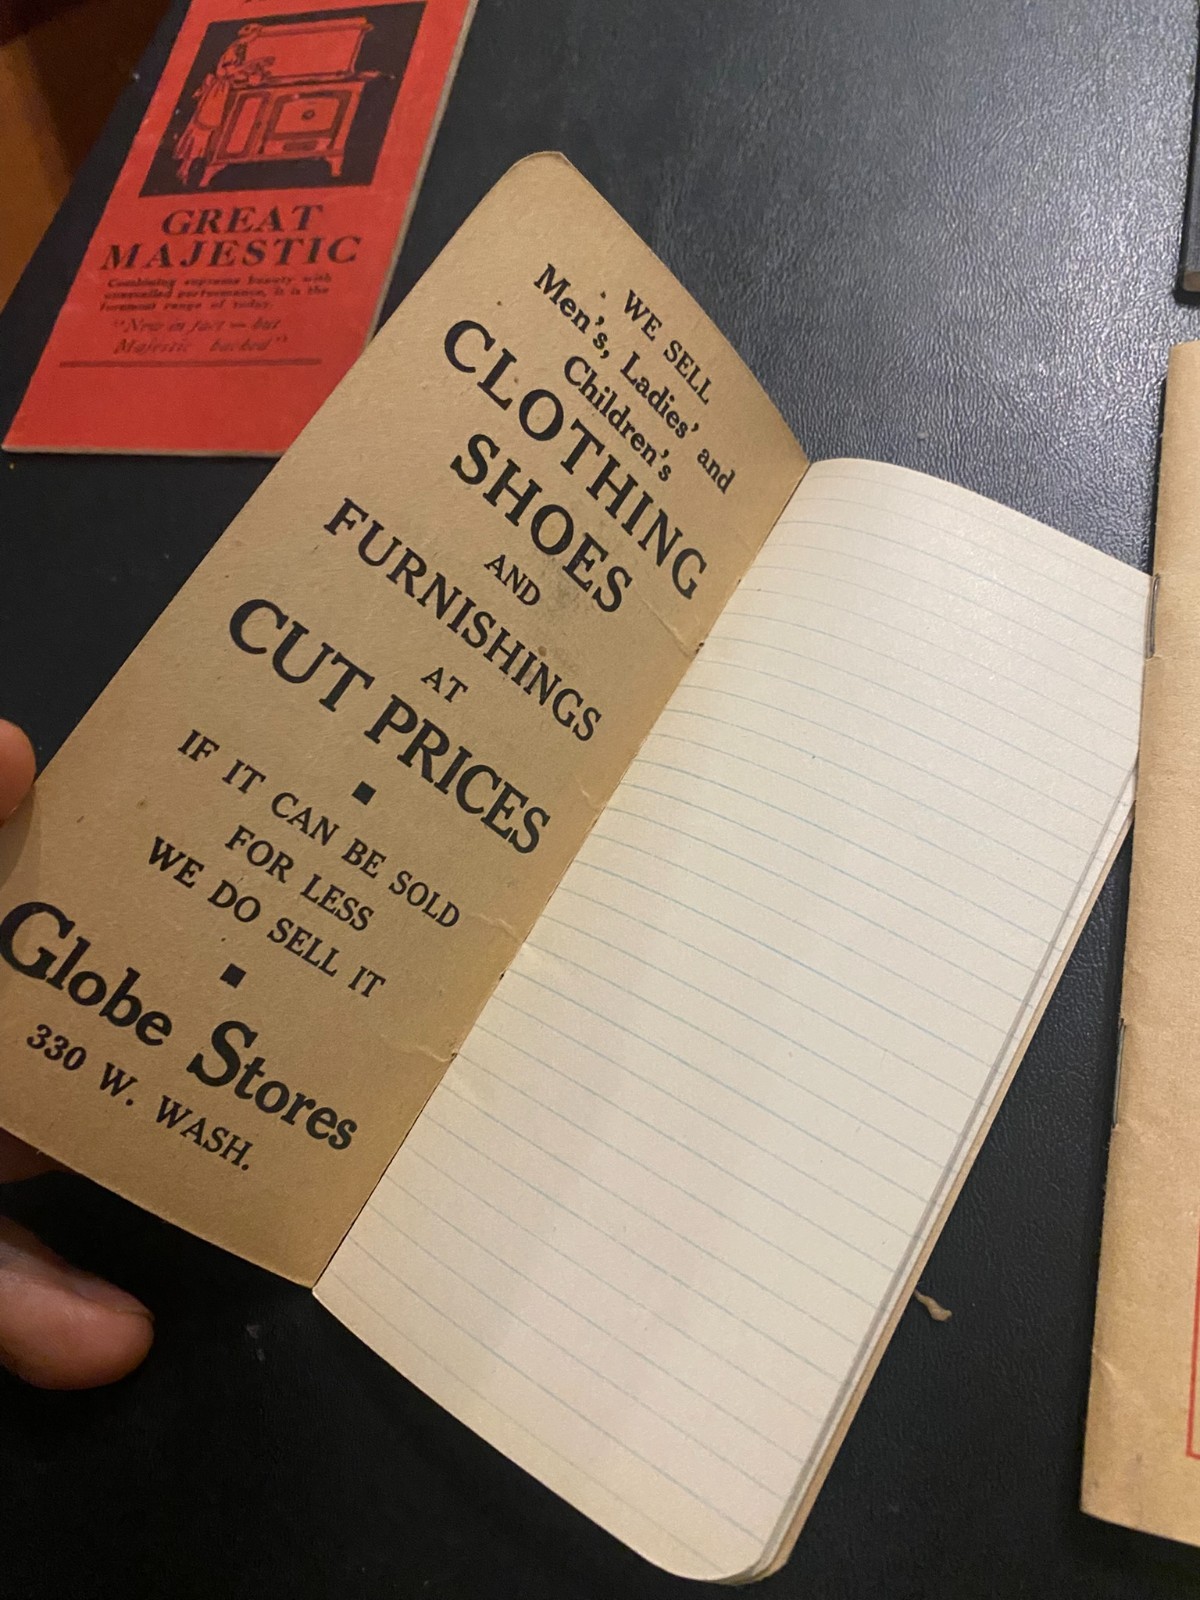 GREAT
MAJESTIC
Combining supreme beauty with
unexcelled performance, it is the
foremost range of today.
"New in fact — but
Majestic backed"
WE SELL
Men's, Ladies' and
Children's
CLOTHING
SHOES
AND
FURNISHINGS
AT
CUT PRICES
IF IT CAN BE SOLD
FOR LESS
WE DO SELL IT
Globe Stores
330 W. WASH.